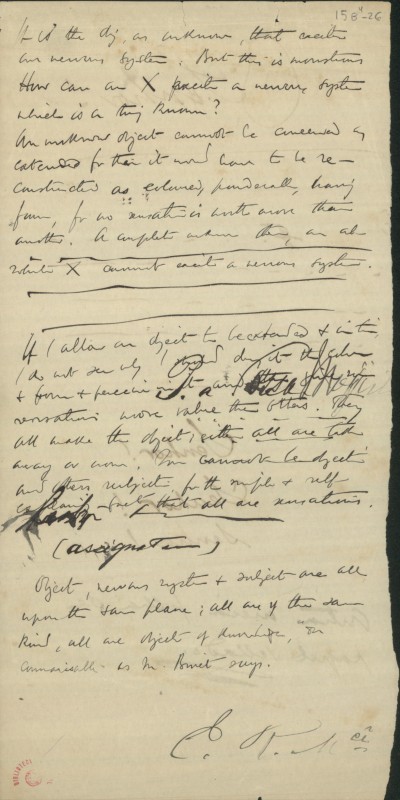 158-26
It is the obj, as unknown, that excites
our nervous system. But this is monstrous
How can an X excite a nervous system
which is a thing known?
An unknown object cannot be conceived as
extended for then it would have to be re-
constructed as coloured, ponderable, having
form, for no sensation is worth more than
another. A complete unknown then, an ab
solute X cannot excite a nervous system.
If I allow an object to be extended &
I do not see why I should deny it the colour
& form &
sensations more value than others. They
all make the object; either all are taken
away or none. Some cannot be objective
and others subject for the simple & self
that all are sensations.
(assignation)
Object, nervous system & subject are all
upon the same plane; all are of the same
kind, all are object of knowledge, or
connaissable as M Binet says.